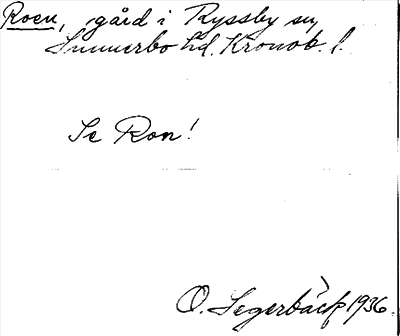 Roen, gård i Ryssby sn,
Sunnerbo hd. Kronob. l.
Se Ron!
O. Segerbäck 1936.